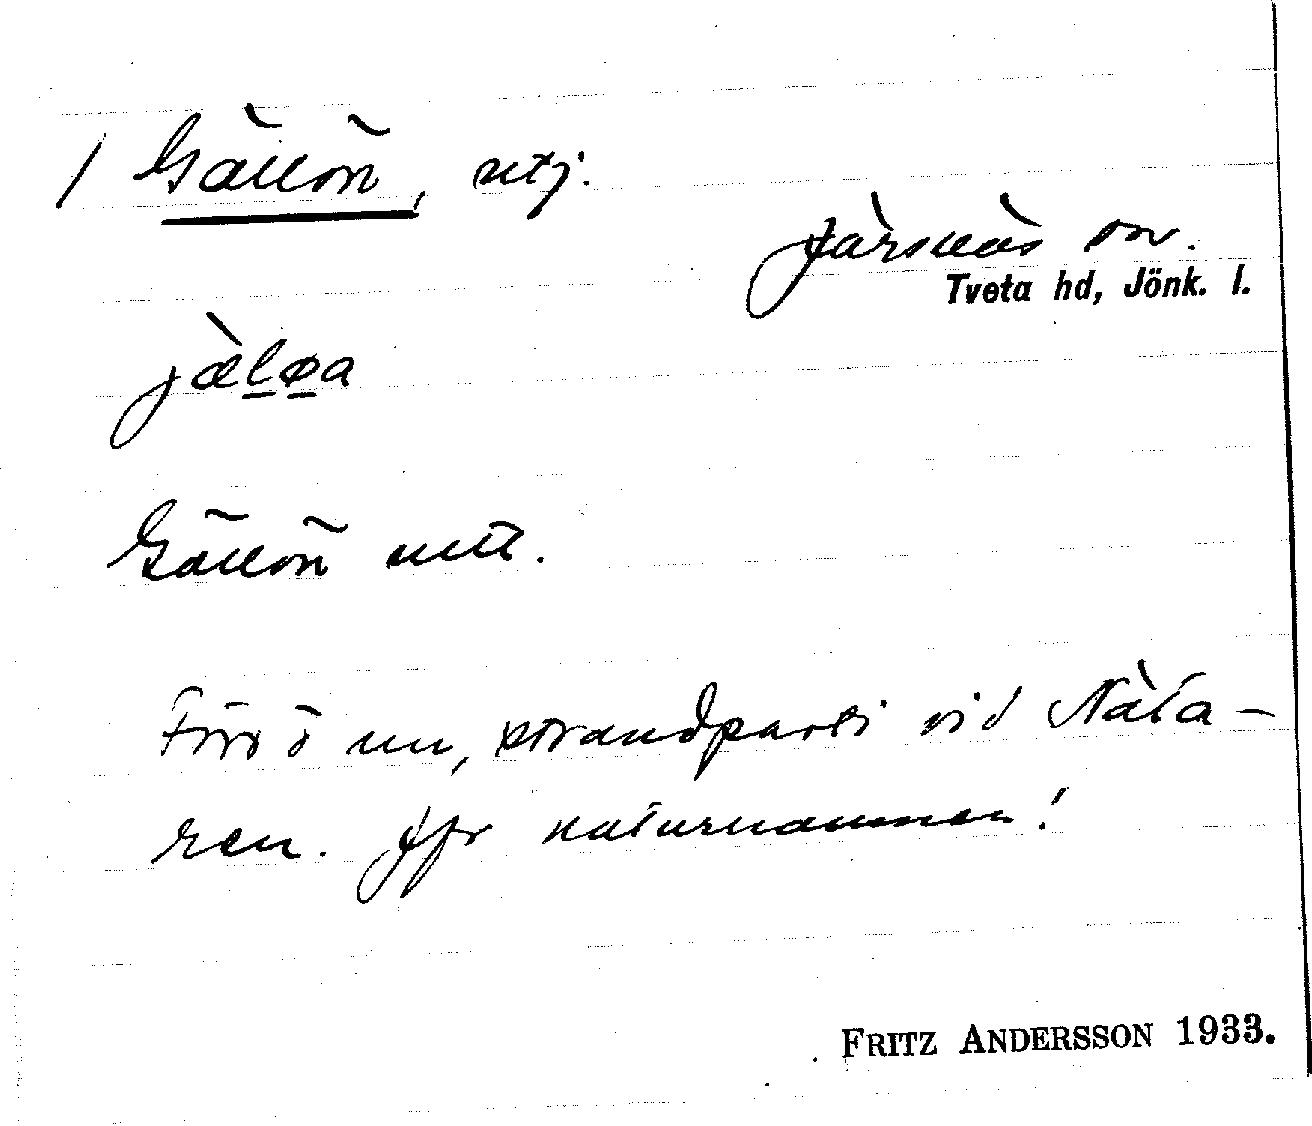 / Gällön, utj.
Järsnäs sn.
Tveta hd, Jönk. l.
jæ̀løa
Gällön utt.
Förr ö nu, strandparti vid Näta-
ren. Jfr naturnamnen!
FRITZ ANDERSSON 1933.